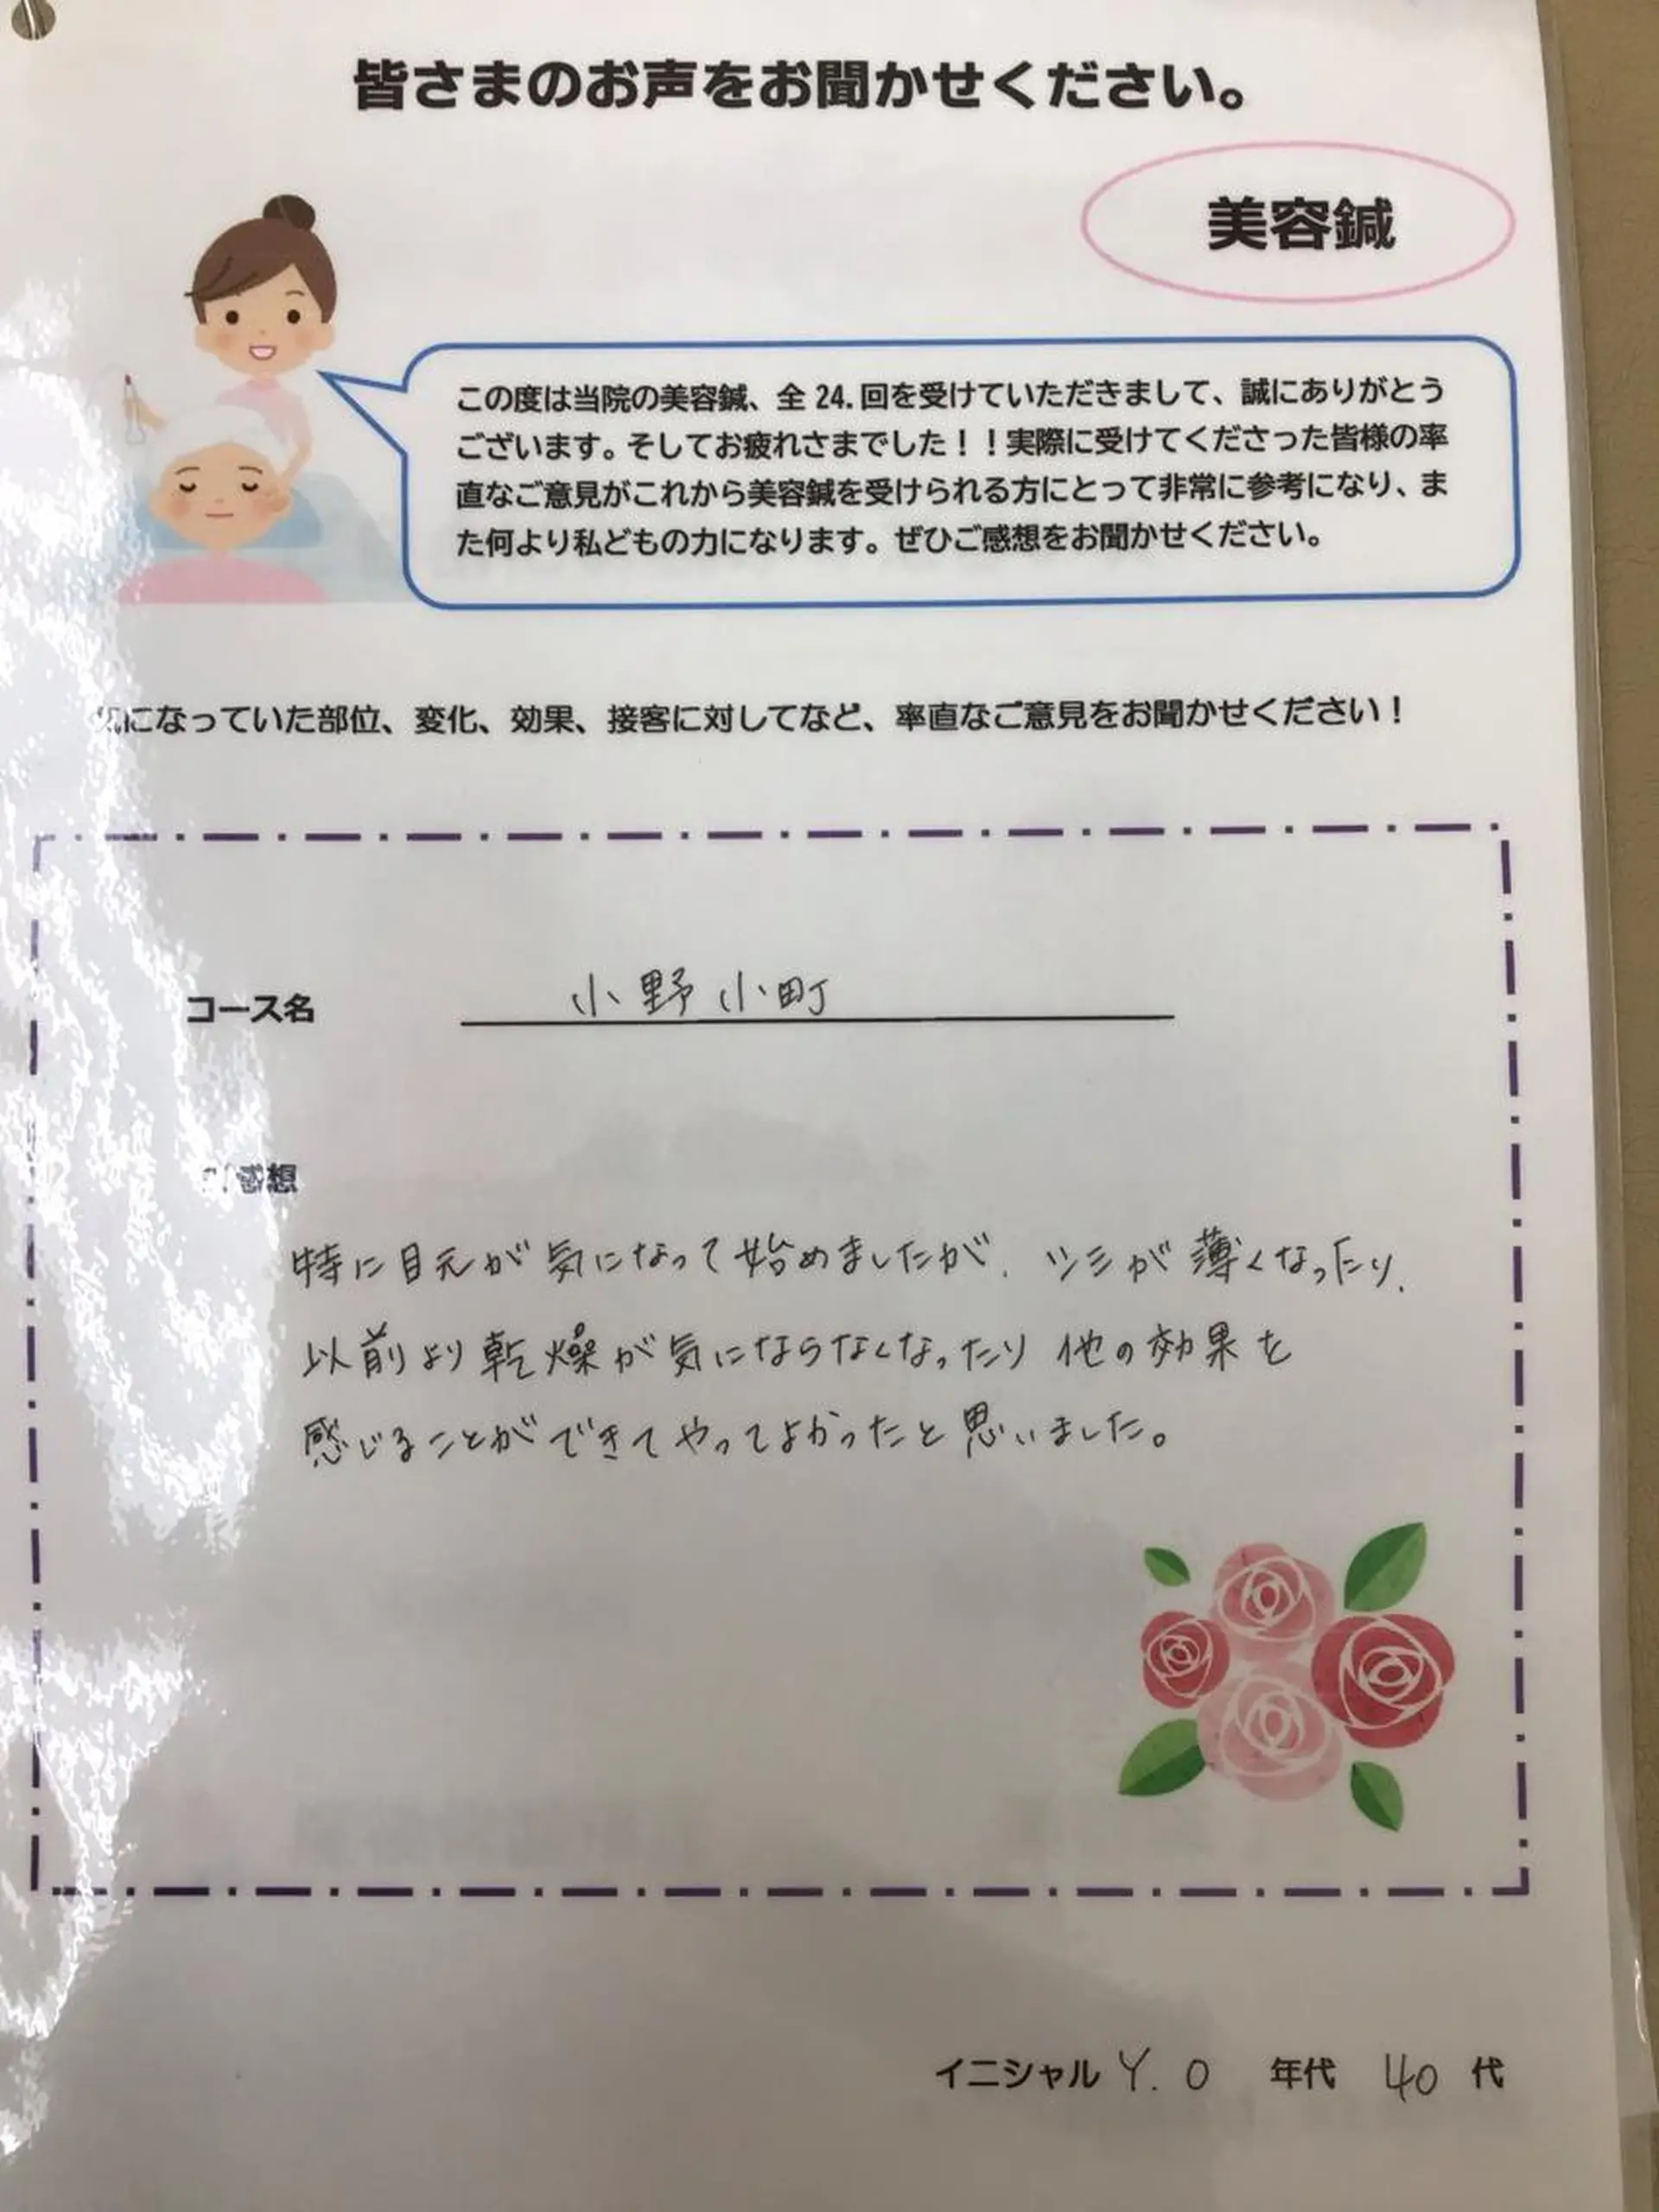 皆さまのお声をお聞かせください。
美容鍼
この度は当院の美容鍼、全 24. 回を受けていただきまして、誠にありがとう
ございます。そしてお疲れさまでした！！実際に受けてくださった皆様の率
直なご意見がこれから美容鍼を受けられる方にとって非常に参考になり、ま
た何より私どもの力になります。ぜひご感想をお聞かせください。
気になっていた部位、変化、効果、接客に対してなど、率直なご意見をお聞かせください！
コース名 小野小町
ご感想
特に目元が気になって始めましたが、シミが薄くなったり、
以前より乾燥が気にならなくなったり他の効果を
感じることができてやってよかったと思いました。
イニシャル Y. O 年代 40 代